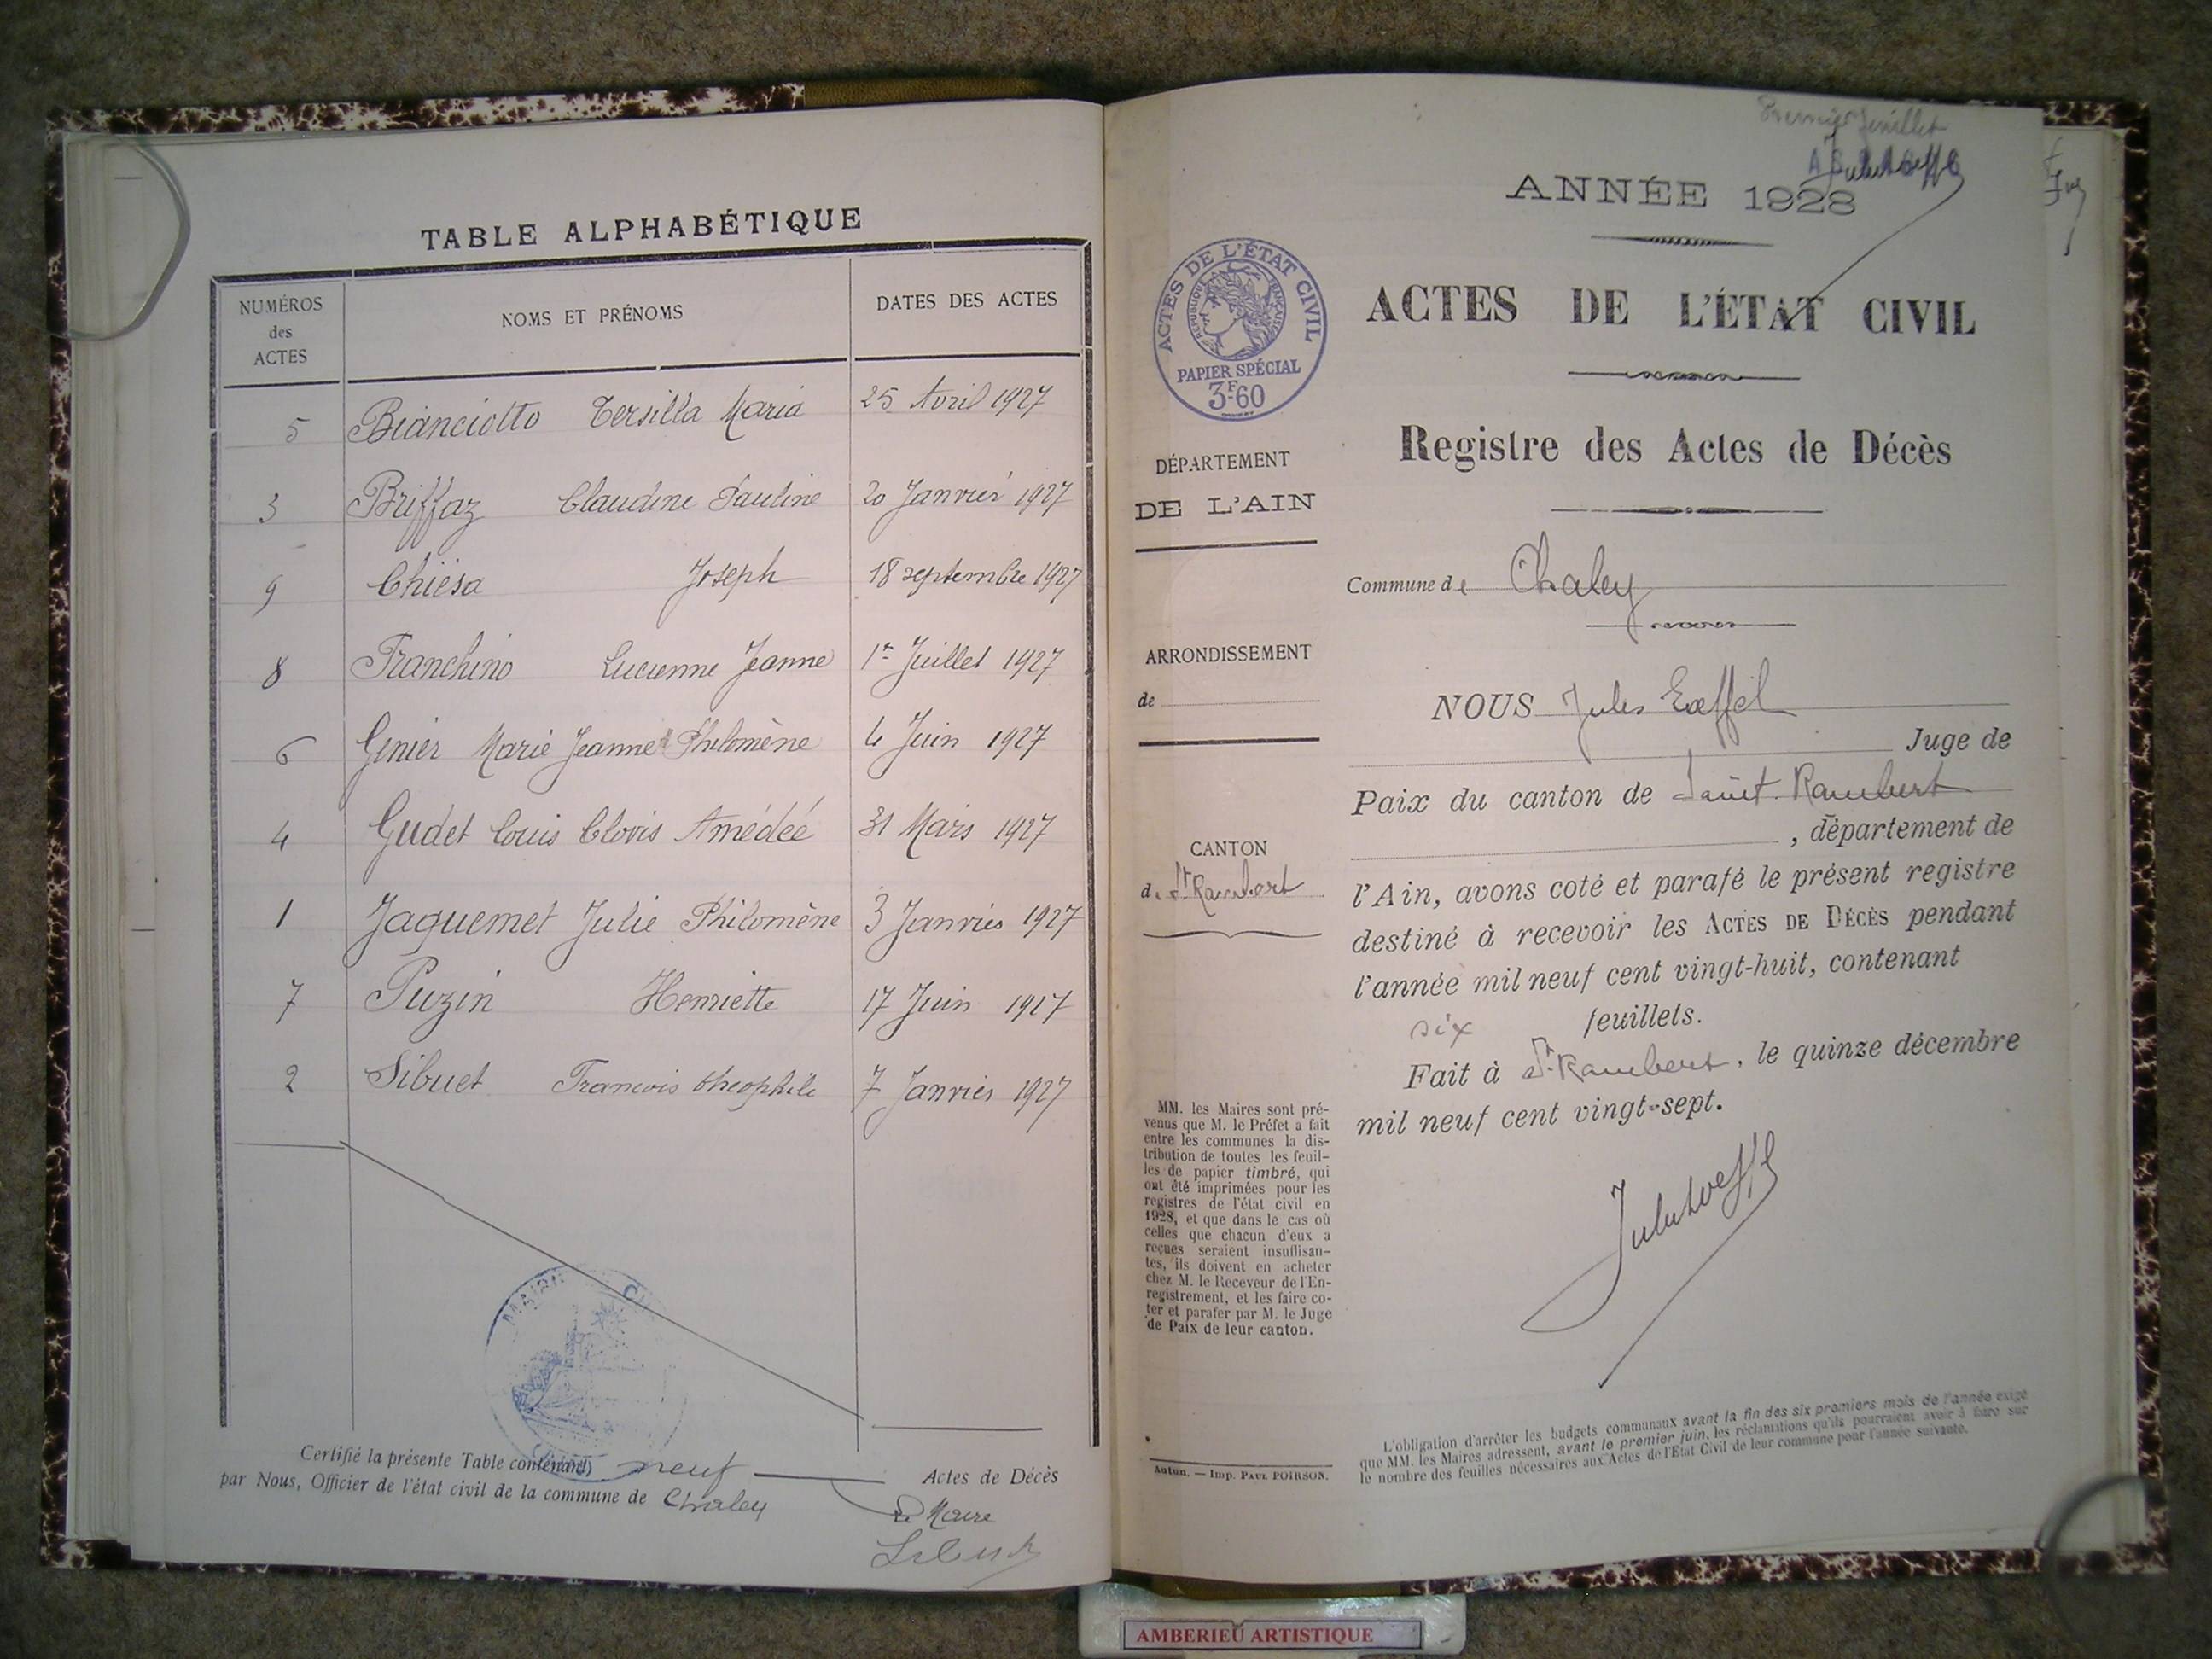 TABLE ALPHABÉTIQUE
NUMÉROS des ACTES | NOMS ET PRÉNOMS | DATES DES ACTES
5 Bianciotto Tersilla Maria 25 Avril 1927
3 Briffaz Claudine Pauline 20 Janvier 1927
9 Chiesa Joseph 18 septembre 1927
8 Franchino Lucienne Jeanne 1er Juillet 1927
6 Genier Marie Jeanne Philomène 4 Juin 1927
4 Gudet Louis Clovis Amédée 31 Mars 1927
1 Jaquemet Julie Philomène 3 Janvier 1927
7 Puzin Henriette 17 Juin 1927
2 Sibuet Francois theophile 7 Janvier 1927
MAIRIE
Certifié la présente Table contenant neuf Actes de Décès
par Nous, Officier de l'état civil de la commune de Chaley
Le Maire
Sibuet
Premier feuillet
ANNÉE 1928
ACTES DE L'ÉTAT CIVIL
RÉPUBLIQUE FRANÇAISE
PAPIER SPÉCIAL
3F60
ACTES DE L'ÉTAT CIVIL
Registre des Actes de Décès
DÉPARTEMENT
DE L'AIN
Commune de Chaley
ARRONDISSEMENT
de
NOUS Jules
Juge de
Paix du canton de Saint-Rambert
, département de
CANTON
de St Rambert
l'Ain, avons coté et parafé le présent registre
destiné à recevoir les ACTES DE DÉCÈS pendant
l'année mil neuf cent vingt-huit, contenant
six feuillets.
Fait à St-Rambert, le quinze décembre
mil neuf cent vingt-sept.
MM. les Maires sont pré-
venus que M. le Préfet a fait
entre les communes la dis-
tribution de toutes les feuil-
les de papier timbré, qui
ont été imprimées pour les
registres de l'état civil en
1928, et que dans le cas où
celles que chacun d'eux a
reçues seraient insuffisan-
tes, ils doivent en acheter
chez M. le Receveur de l'En-
registrement, et les faire co-
ter et parafer par M. le Juge
de Paix de leur canton.
L'obligation d'arrêter les budgets communaux avant la fin des six premiers mois de l'année exige
que MM. les Maires adressent, avant le premier juin, les réclamations qu'ils pourraient avoir à faire sur
le nombre des feuilles nécessaires aux Actes de l'Etat Civil de leur commune pour l'année suivante.
Autun. — Imp. PAUL POIRSON.
AMBERIEU ARTISTIQUE